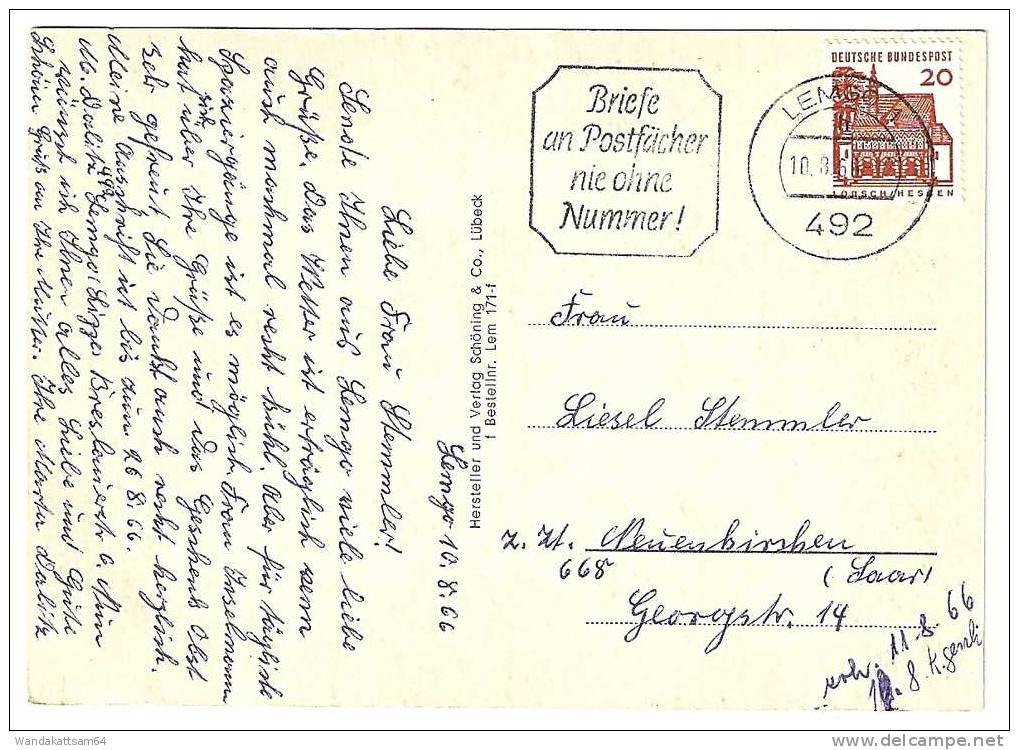 Lemgo 10.8.66
Liebe Frau Stemmler!
Sende Ihnen aus Lemgo viele liebe
Grüße. Das Wetter ist erträglich wenn
auch manchmal recht kühl. Aber für tägliche
Spaziergänge ist es möglich. Frau Inselmann
hat sich über Ihre Grüße und das Geschenk Obst
sehr gefreut. Sie dankt auch recht herzlich.
Meine Anschrift ist bis zum 26.8.66.
M. Dalitz 492 Lemgo/Lippe Breslauerstr. 6. Nun
wünsch ich Ihnen alles Liebe und Gute
Schöner Gruß an Ihre Mutter. Ihre Marta Dalitz
Hersteller und Verlag Schöning & Co., Lübeck
f Bestellnr. Lem 171-f
Briefe
an Postfächer
nie ohne
Nummer!
LEMGO
10.8.66
492
DEUTSCHE BUNDESPOST
20
LORSCH/HESSEN
Frau
Liesel Stemmler
z. Zt. Neuenkirchen
668 (Saar)
Georgstr. 14
erh. 11.8.66
8. K.
Wandakattsam64
http://www.delcampe.net